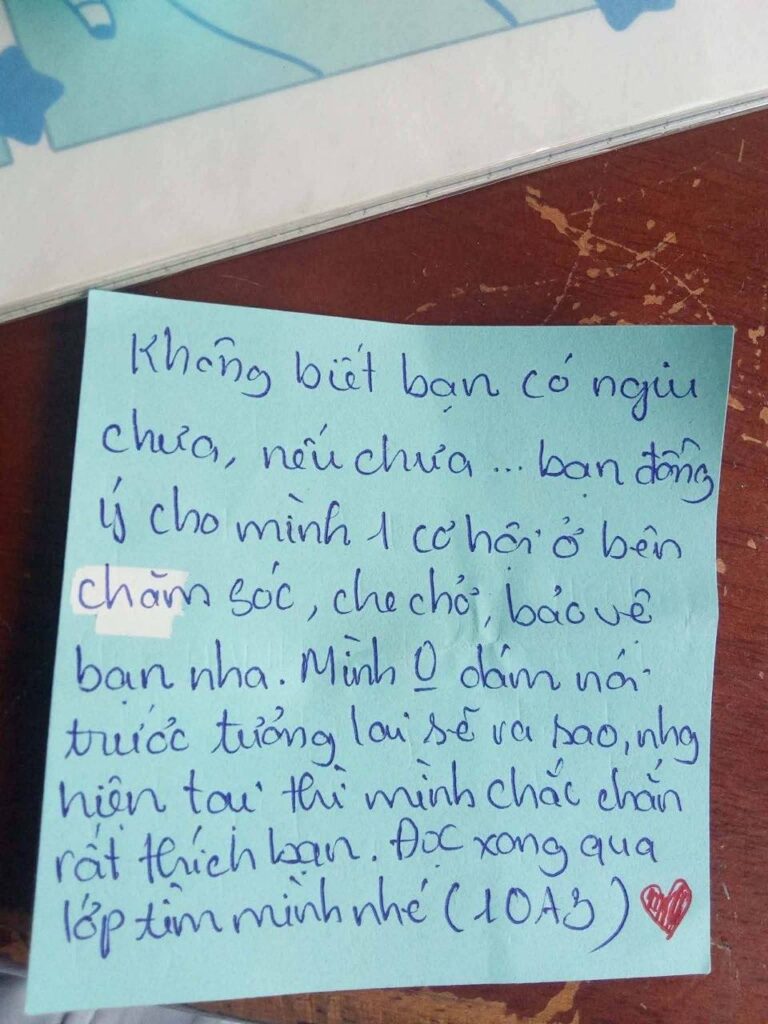 Không biết bạn có ngiu
chưa, nếu chưa ... bạn đồng
ý cho mình 1 cơ hội ở bên
chăm sóc, che chở, bảo vệ
bạn nha. Mình 0 dám nói
trước tưởng lai sẽ ra sao, nhg
hiện tại thì mình chắc chắn
rất thích bạn. Đọc xong qua
lớp tìm mình nhé (10A3)